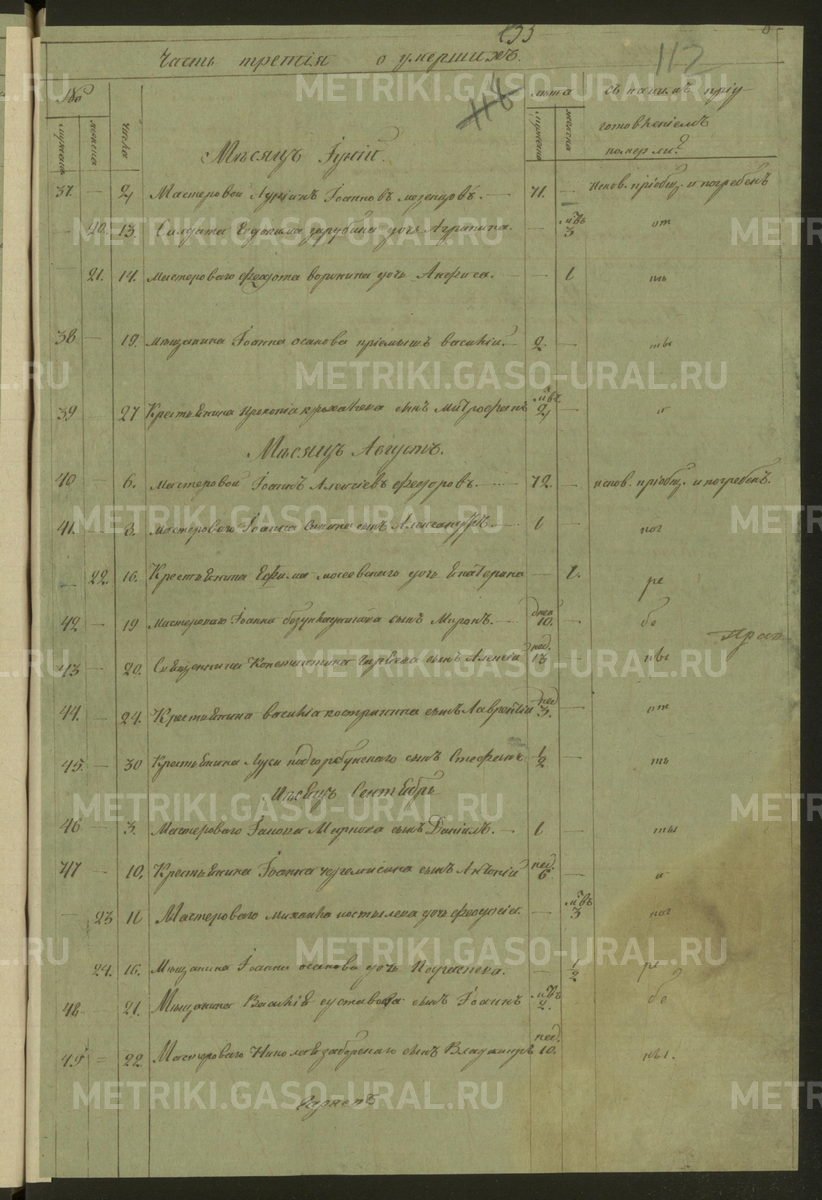 133
Часть третія о умершихъ.
117
118
№
мужеска
женска
числа
лѣта
мужеска
женска
съ какимъ пріу
готовленіемъ
померли?
Мѣсяцъ Іулій.
37. — 2, Мастеровой Іоанновъ — 71. — испов. пріобщ. и погребенъ
— 20. 13. Солдата Евдокима зарубина дочь Агрипина. — м̃цъ 3 от
21. 14. Мастероваго Федота воронина дочь Анфиса. — 1 пѣ
38 — 19. мѣщанина Іоанна осипова пріемышъ василій. — 2. — ты
39 27 Крестьянина Прокопія сынъ Митрофанъ м̃цъ 2, — и
Мѣсяцъ Августъ.
40 — 6. Мастеровой Іоаннъ Алексіевъ Федоровъ. — 72. — испов. пріобщ. и погребенъ.
41. — 8. мастероваго Іоанна сынъ Александръ — 1 — пог
— 22. 16. Крестьянина Ефима мосеевскаго дочь Екатерина — 1. ре
42 — 19 Мастероваго Іоанна сынъ Миронъ. — дней 10. — бе
43 — 20. Священника Константина сынъ Алексій нед. 13 — ны
44. — 24. Крестьянина василія костромина сынъ Лаврентій нед 3. — от
45. — 30 Крестьянина Луки подгорбунскаго сынъ Стефанъ — 1/2 — пѣ
Мѣсяцъ Сентябрь
46 — 3. Мастероваго Маркова сынъ Даніилъ. — 1 — ты
47 — 10. Крестьянина Іоанна черемисина сынъ Антоній нед. 6. — и
— 23 11 Мастероваго михаила костылева дочь Феодосія. — м̃цъ 3 пог
24. 16. Мѣщанина Іоанна осипова дочь — 1/2 ре
48. 21. Мѣщанина Василія суставова сынъ Іоаннъ м̃цъ 2. — бе
49 = 22. Мастероваго Николая заборскаго сынъ Владимиръ нед. 10. — ны.
METRIKI.GASO-URAL.RU